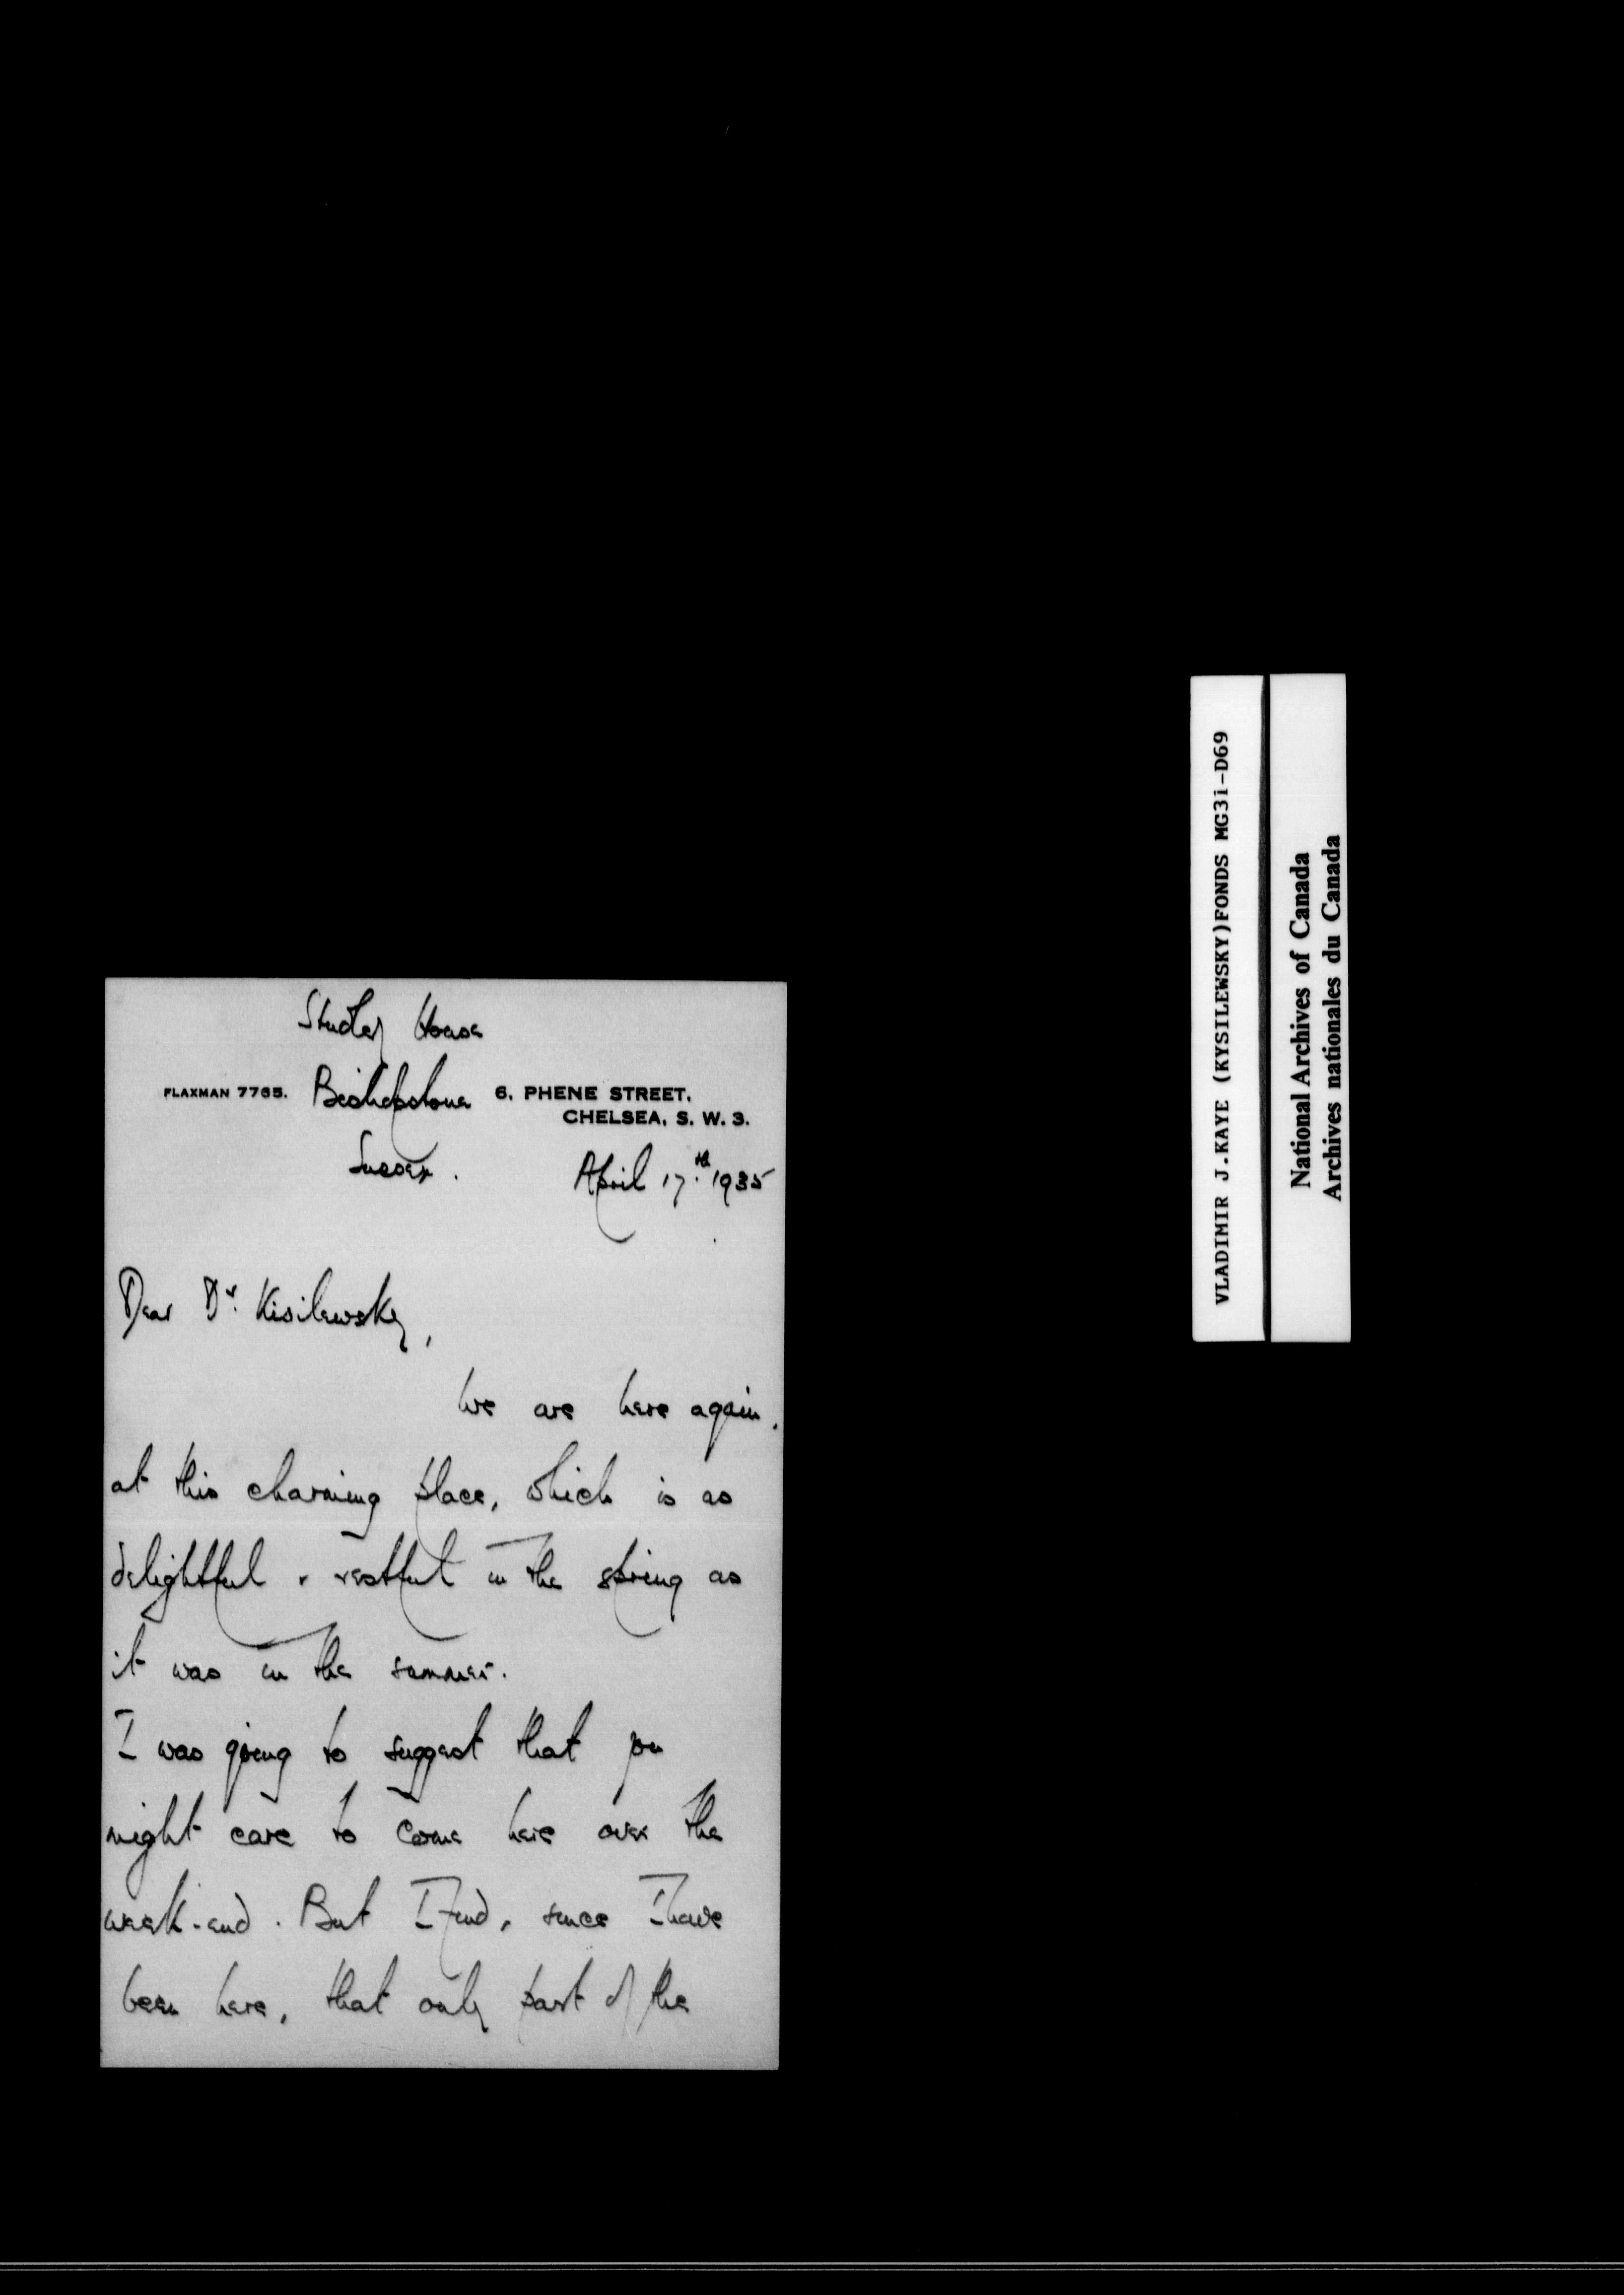 Studley House
FLAXMAN 7765. Bishopstone 6, PHENE STREET,
CHELSEA, S. W. 3.
Sussex.
April 17th. 1935
Dear Dr. Kisilewsky,
We are here again.
at this charming place, which is as
delightful & restful in the spring as
it was in the summer.
I was going to suggest that you
might care to come here over the
week-end. But I find, since I have
been here, that only part of the
VLADIMIR J.KAYE (KYSILEWSKY)FONDS MG31-D69
National Archives of Canada
Archives nationales du Canada